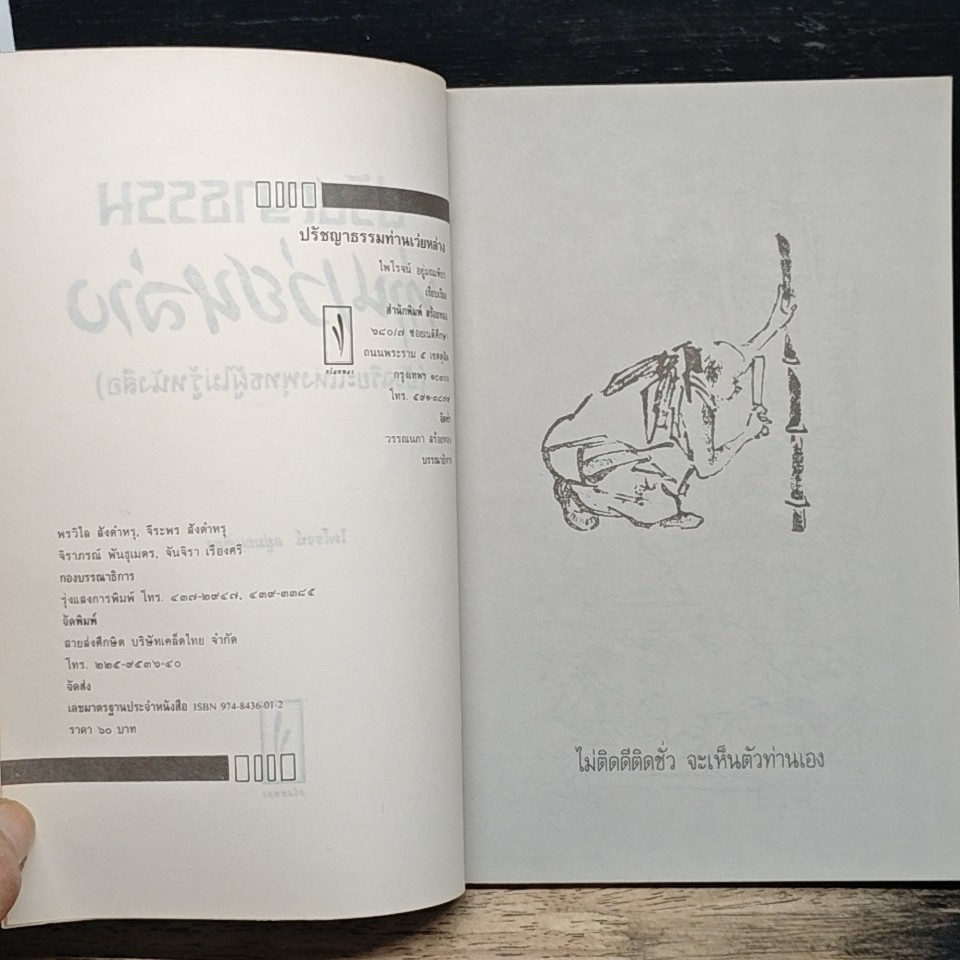 ปรัชญาธรรมท่านเว่ยหล่าง
ไพโรจน์ อยู่มณเฑียร
เรียบเรียง
สำนักพิมพ์ สร้อยทอง
๖๘๐/๗ ซอยเนติศึกษา
ถนนพระราม ๕ เขตดุสิต
กรุงเทพฯ ๑๐๓๐๐
โทร. ๕๙๑-๓๘๓๙
จัดทำ
วรรณนภา สร้อยทอง
บรรณาธิการ
พรวิไล สังดำหรุ, จีระพร สังดำหรุ
จิราภรณ์ พันธุเมตร, จันจิรา เรืองศรี
กองบรรณาธิการ
รุ่งแสงการพิมพ์ โทร. ๔๓๗-๒๙๔๗, ๔๓๙-๓๓๘๕
จัดพิมพ์
สายส่งศึกษิต บริษัทเคล็ดไทย จำกัด
โทร. ๒๒๕-๙๕๓๖-๔๐
จัดส่ง
เลขมาตรฐานประจำหนังสือ ISBN 974-8436-01-2
ราคา ๖๐ บาท
ไม่ติดดีติดชั่ว จะเห็นตัวท่านเอง